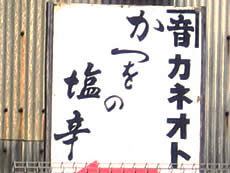 音カネオト
かつをの塩辛